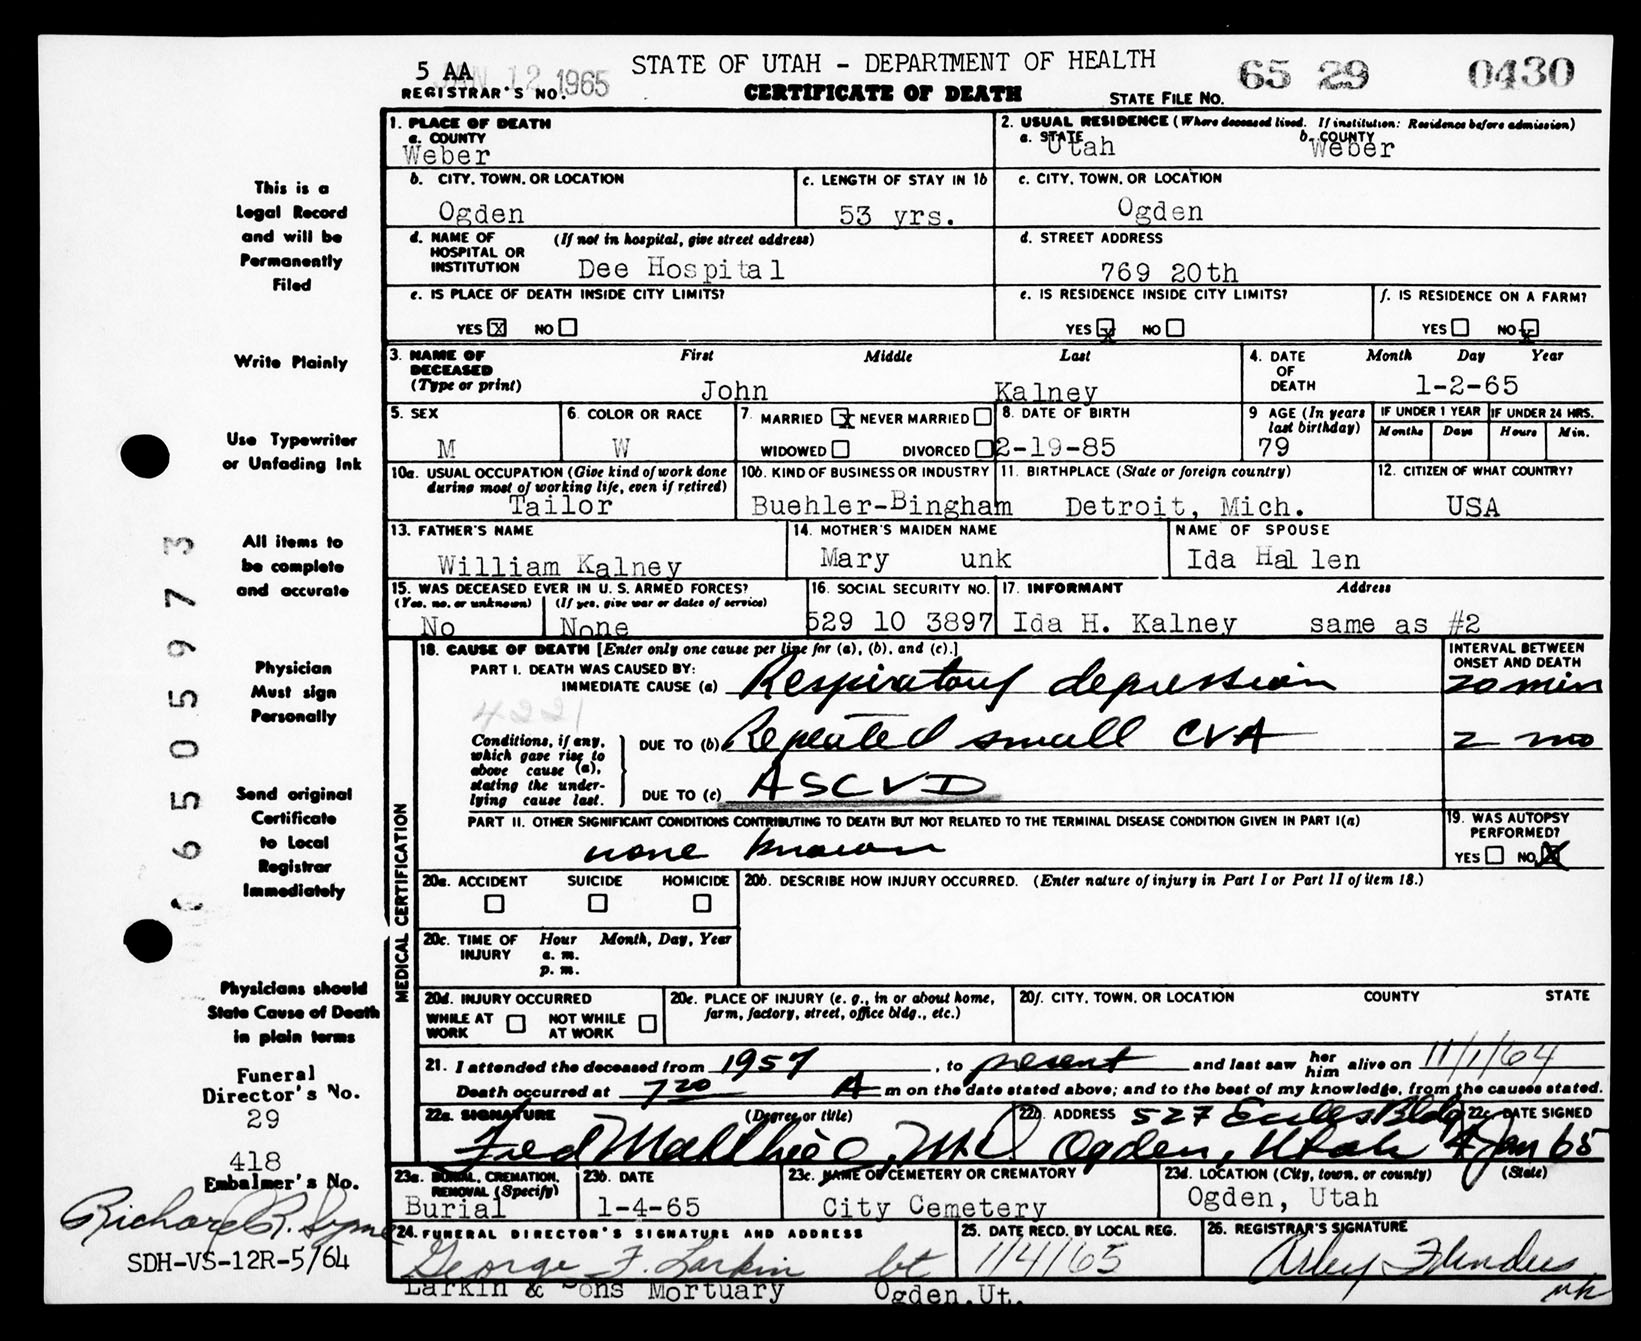 5 AA
JAN 12 1965
REGISTRAR'S NO.
STATE OF UTAH - DEPARTMENT OF HEALTH
CERTIFICATE OF DEATH
STATE FILE NO.
65 29 0430
This is a
Legal Record
and will be
Permanently
Filed
Write Plainly
Use Typewriter
or Unfading Ink
All items to
be complete
and accurate
Physician
Must sign
Personally
Send original
Certificate
to Local
Registrar
Immediately
Physicians should
State Cause of Death
in plain terms
Funeral
Director's No.
29
418
Embalmer's No.
Richard R.
SDH-VS-12R-5/64
6505973
1. PLACE OF DEATH
a. COUNTY
Weber
2. USUAL RESIDENCE (Where deceased lived. If institution: Residence before admission)
a. STATE Utah b. COUNTY Weber
b. CITY, TOWN, OR LOCATION
Ogden
c. LENGTH OF STAY IN 1b
53 yrs.
c. CITY, TOWN, OR LOCATION
Ogden
d. NAME OF HOSPITAL OR INSTITUTION (If not in hospital, give street address)
Dee Hospital
d. STREET ADDRESS
769 20th
e. IS PLACE OF DEATH INSIDE CITY LIMITS?
YES X NO
e. IS RESIDENCE INSIDE CITY LIMITS?
YES X NO
f. IS RESIDENCE ON A FARM?
YES NO X
3. NAME OF DECEASED (Type or print)
First Middle Last
John Kalney
4. DATE OF DEATH
Month Day Year
1-2-65
5. SEX
M
6. COLOR OR RACE
W
7. MARRIED X NEVER MARRIED
WIDOWED DIVORCED
8. DATE OF BIRTH
2-19-85
9 AGE (In years last birthday)
79
IF UNDER 1 YEAR
Months Days
IF UNDER 24 HRS.
Hours Min.
10a. USUAL OCCUPATION (Give kind of work done during most of working life, even if retired)
Tailor
10b. KIND OF BUSINESS OR INDUSTRY
Buehler-Bingham
11. BIRTHPLACE (State or foreign country)
Detroit, Mich.
12. CITIZEN OF WHAT COUNTRY?
USA
13. FATHER'S NAME
William Kalney
14. MOTHER'S MAIDEN NAME
Mary unk
NAME OF SPOUSE
Ida Hallen
15. WAS DECEASED EVER IN U. S. ARMED FORCES?
(Yes, no, or unknown) (If yes, give war or dates of service)
No None
16. SOCIAL SECURITY NO.
529 10 3897
17. INFORMANT Address
Ida H. Kalney same as #2
MEDICAL CERTIFICATION
18. CAUSE OF DEATH [Enter only one cause per line for (a), (b), and (c).]
INTERVAL BETWEEN ONSET AND DEATH
PART I. DEATH WAS CAUSED BY:
IMMEDIATE CAUSE (a) Respiratory depression 20 min
4221
Conditions, if any, which gave rise to above cause (a), stating the underlying cause last.
DUE TO (b) Repeated small CVA 2 mo
DUE TO (c) ASCVD
PART II. OTHER SIGNIFICANT CONDITIONS CONTRIBUTING TO DEATH BUT NOT RELATED TO THE TERMINAL DISEASE CONDITION GIVEN IN PART I(a)
none known
19. WAS AUTOPSY PERFORMED?
YES NO X
20a. ACCIDENT SUICIDE HOMICIDE
20b. DESCRIBE HOW INJURY OCCURRED. (Enter nature of injury in Part I or Part II of item 18.)
20c. TIME OF INJURY Hour Month, Day, Year
a. m.
p. m.
20d. INJURY OCCURRED
WHILE AT WORK NOT WHILE AT WORK
20e. PLACE OF INJURY (e. g., in or about home, farm, factory, street, office bldg., etc.)
20f. CITY, TOWN, OR LOCATION COUNTY STATE
21. I attended the deceased from 1957, to present and last saw her him alive on 11/1/64
Death occurred at 7 20 A m on the date stated above; and to the best of my knowledge, from the causes stated.
22a. SIGNATURE (Degree or title)
Fred
22b. ADDRESS 527 Eccles Bldg
Ogden, Utah
22c DATE SIGNED
4 Jan 65
23a. BURIAL, CREMATION, REMOVAL (Specify)
Burial
23b. DATE
1-4-65
23c. NAME OF CEMETERY OR CREMATORY
City Cemetery
23d. LOCATION (City, town, or county) (State)
Ogden, Utah
24. FUNERAL DIRECTOR'S SIGNATURE AND ADDRESS
George F. Larkin
Larkin & Sons Mortuary Ogden, Ut.
25. DATE RECD. BY LOCAL REG.
1/4/65
26. REGISTRAR'S SIGNATURE